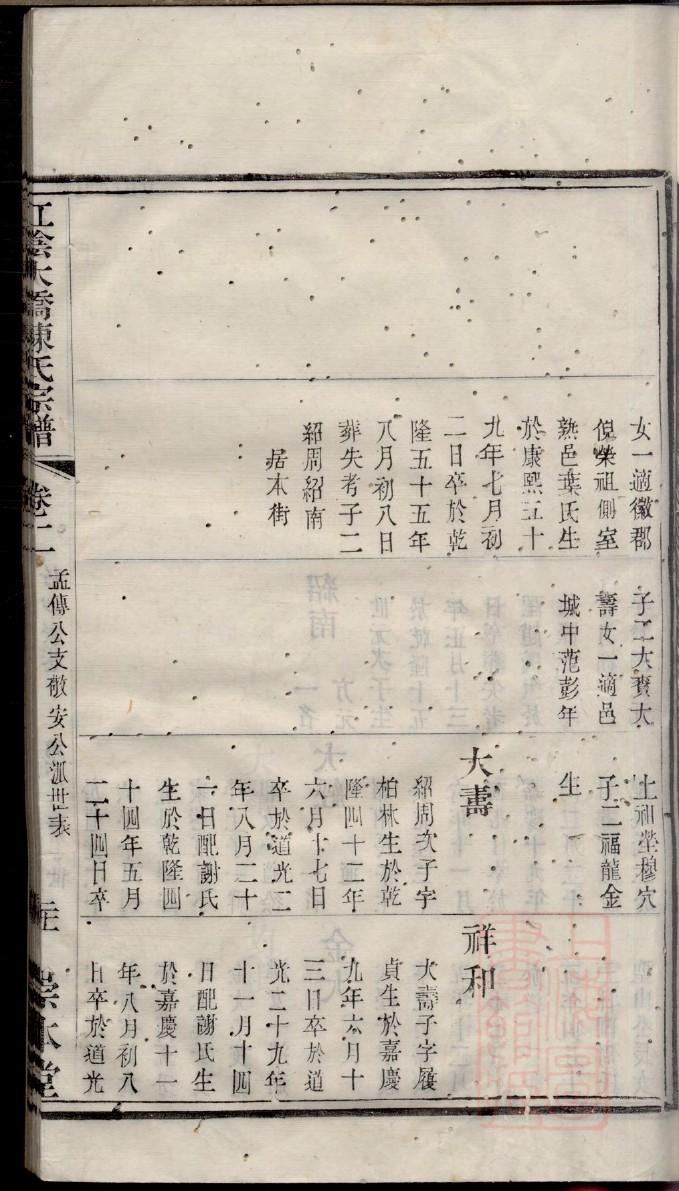 女一適徽郡
倪榮祖側室
熟邑葉氏生
於康熙五十
九年七月初
二日卒於乾
隆五十五年
八月初八日
葬失考子二
紹周紹南
居本街
子二大賚大
壽女一適邑
城中范彭年
土祔塋穆穴
子二福龍金
生
大壽
紹周次子字
柏林生於乾
隆四十二年
六月十七日
卒於道光二
年八月二十
一日配謝氏
生於乾隆四
十四年五月
二十四日卒
祥和
大壽子字履
貞生於嘉慶
九年六月十
三日卒於道
光二十九年
十一月十四
日配謝氏生
於嘉慶十一
年八月初八
日卒於道光
江陰大橋陳氏宗譜
卷十二
孟傳公支敬安公派世表
崇本堂